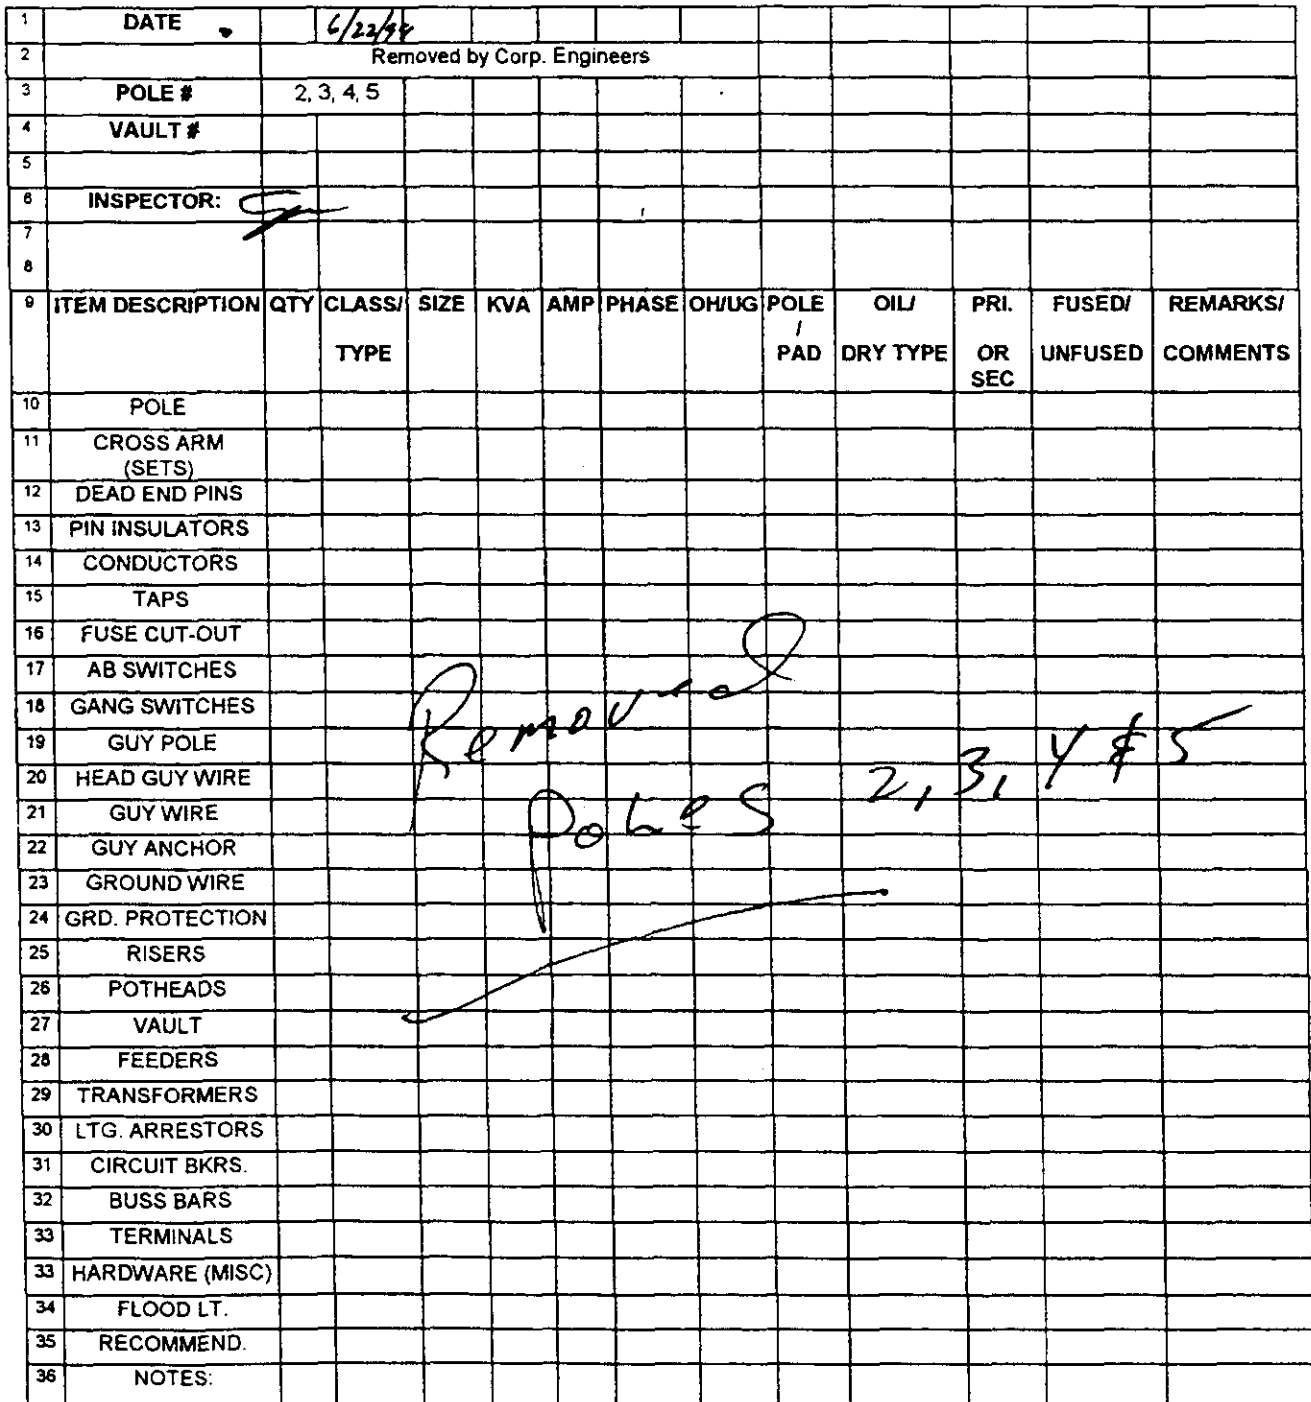 1 DATE 6/22/98
2 Removed by Corp. Engineers
3 POLE # 2, 3, 4, 5
4 VAULT #
5
6 INSPECTOR:
7
8
9 ITEM DESCRIPTION QTY CLASS/ SIZE KVA AMP PHASE OH/UG POLE OIL/ PRI. FUSED/ REMARKS/
/
TYPE PAD DRY TYPE OR UNFUSED COMMENTS
SEC
10 POLE
11 CROSS ARM
(SETS)
12 DEAD END PINS
13 PIN INSULATORS
14 CONDUCTORS
15 TAPS
16 FUSE CUT-OUT
17 AB SWITCHES
18 GANG SWITCHES
Removed
19 GUY POLE
20 HEAD GUY WIRE
Poles 2, 3, 4 & 5
21 GUY WIRE
22 GUY ANCHOR
23 GROUND WIRE
24 GRD. PROTECTION
25 RISERS
26 POTHEADS
27 VAULT
28 FEEDERS
29 TRANSFORMERS
30 LTG. ARRESTORS
31 CIRCUIT BKRS.
32 BUSS BARS
33 TERMINALS
33 HARDWARE (MISC)
34 FLOOD LT.
35 RECOMMEND.
36 NOTES: